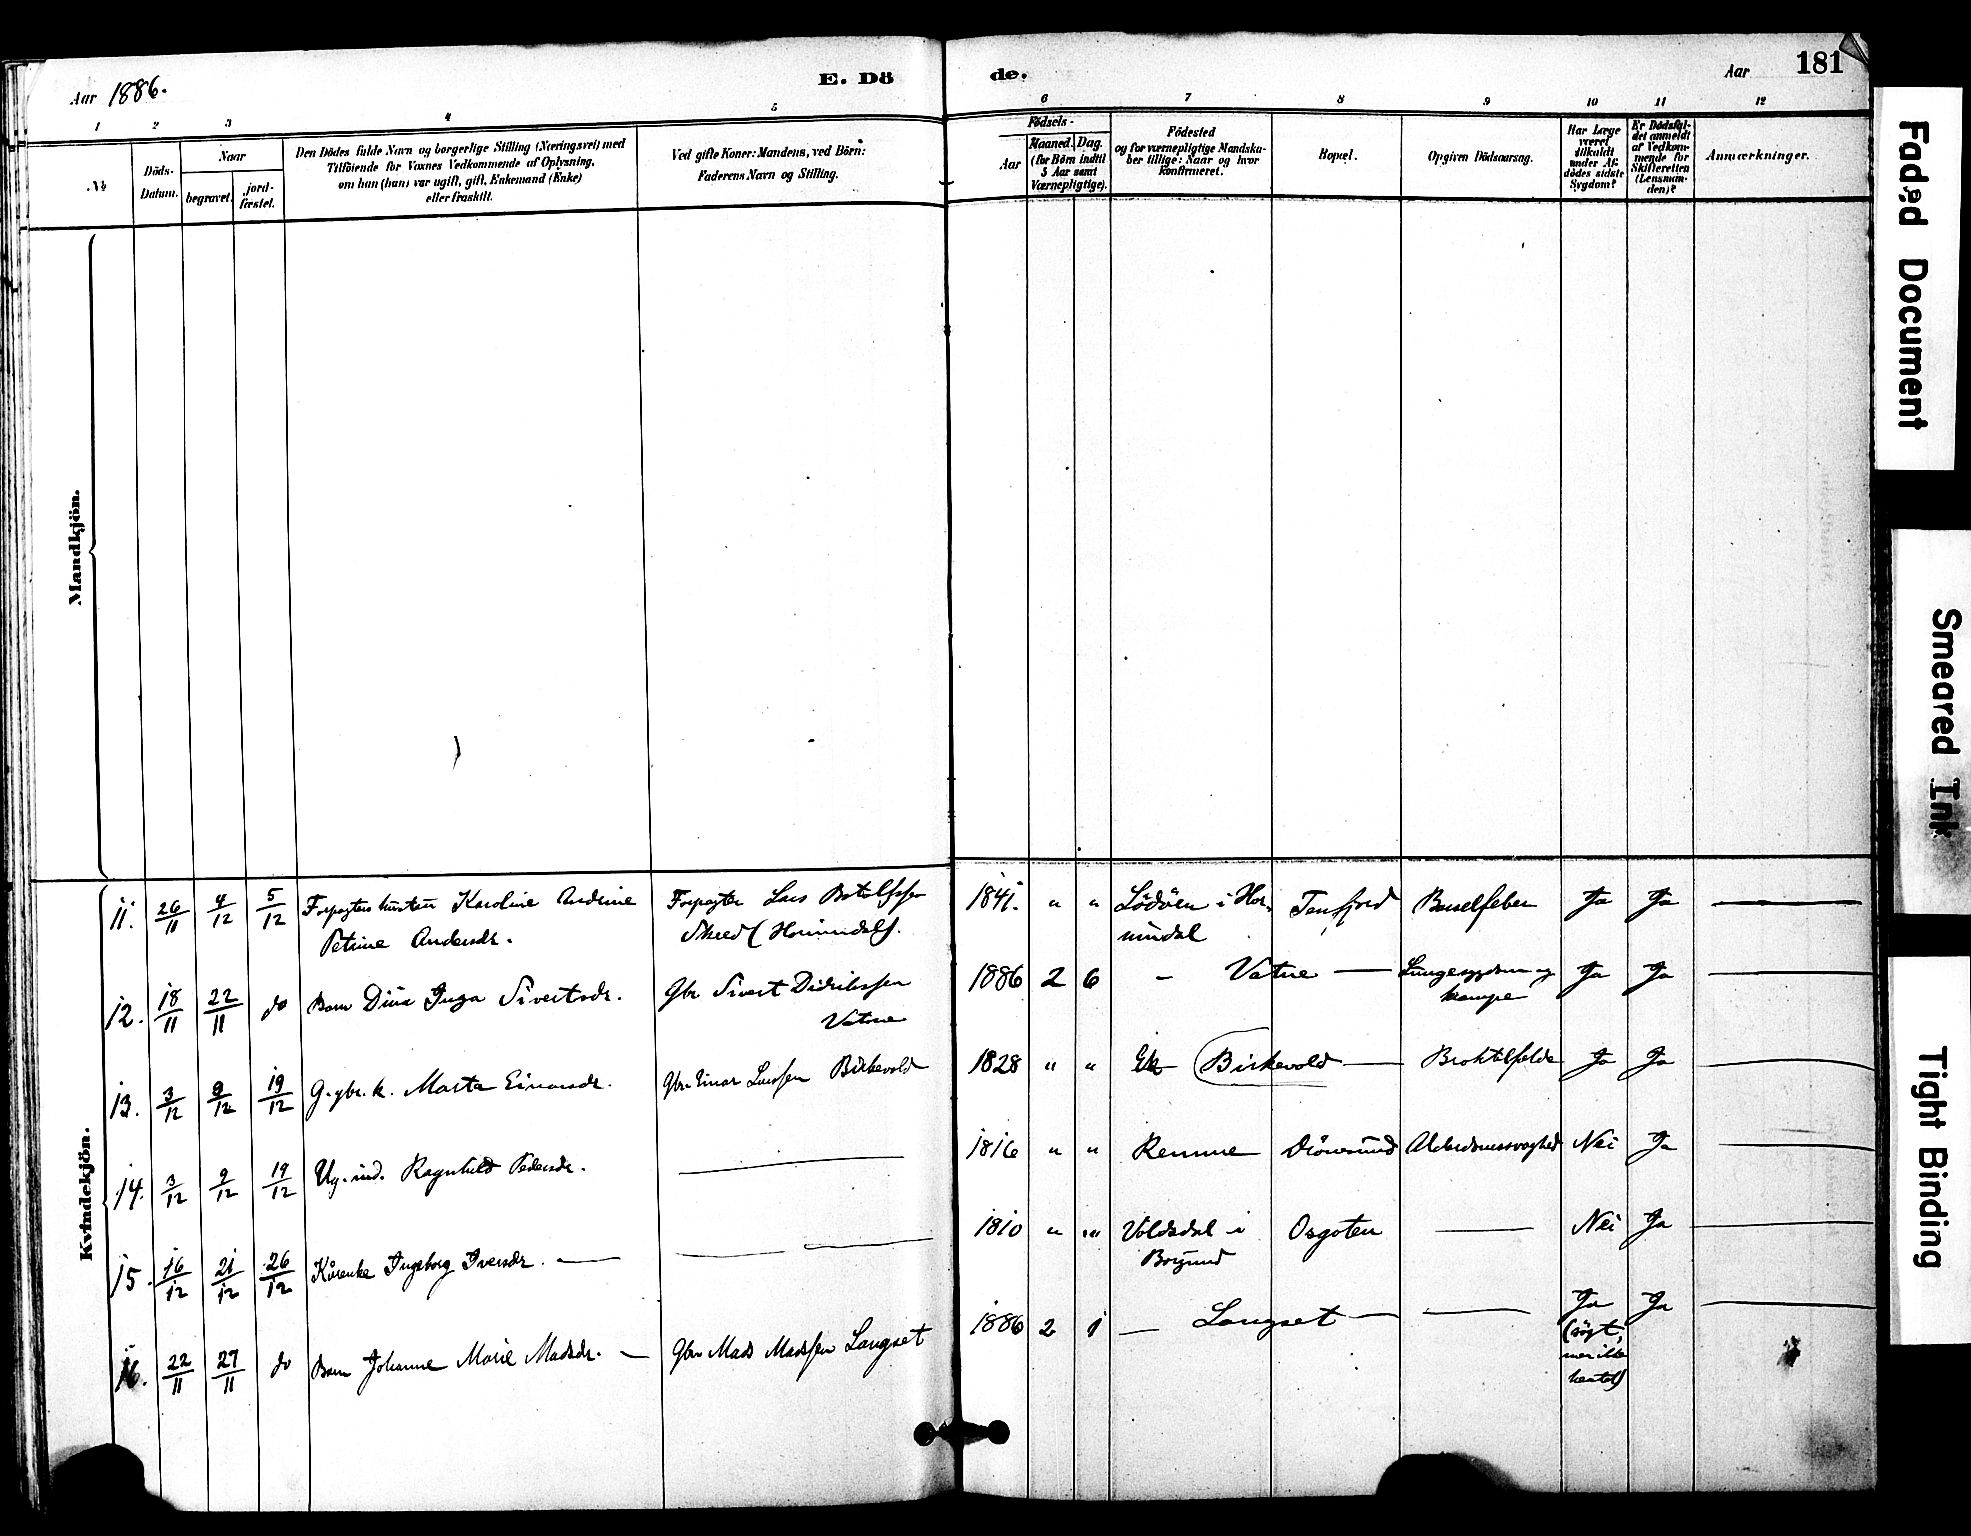 Aar 1886.
E. Dö
de.
Aar
181
1 2 3 4 5 6 7 8 9 10 11 12
No
Döds-
Datum.
Naar
begravet.
jord-
fæstet.
Den Dödes fulde Navn og borgerlige Stilling (Næringsvei) med
Tilföiende for Voxnes Vedkommende af Oplysning,
om han (hun) var ugift, gift, Enkemand (Enke)
eller fraskilt.
Ved gifte Koner: Mandens, ved Börn:
Faderens Navn og Stilling.
Födsels-
Aar
Maaned.
Dag.
(for Börn indtil
5 Aar samt
Værnepligtige).
Födested
og for værnepligtige Mandska-
ber tillige: Naar og hvor
konfirmeret.
Bopæl.
Opgiven Dödsaarsag.
Har Læge
været
tilkaldt
under Af-
dödes sidste
Sygdom?
Er Dödsfal-
det anmeldt
af Vedkom-
mende for
Skifteretten
(Lensman-
den)?
Anmærkninger.
Mandkjön.
Kvindekjön.
11. 26/11 4/12 5/12 Forpagters hustru Karoline Andrine
Petrine Andersdr.
Forpagter Lars
Skred (Horrindal).
1841. " " Lödöen i Hor-
nindal
Tenfjord Barselfeber Ja Ja —
12. 18/11 22/11 do Barn Dina Inga Sivertsdr.
Gbr Sivert Didrikssen
Vatne
1886 2 6 — Vatne — Lungesygdom og
krampe
Ja Ja —
13. 3/12 9/12 19/12 G. gbr. k. Marta Einarsdr.
Gbr Einar Larssen Birkevold
1828 " " Birkevold — Ja Ja —
14. 3/12 9/12 19/12 Ug. ind. Ragnhild Pedersdr. —
1816 " " Remme Alderdomssvaghed Nei Ja —
15. 16/12 21/12 26/12 Kårenke Ingeborg Iversdr. — —
1810 " " Voldsdal i
Borgund
Osgoten — Nei Ja —
16. 22/11 27/11 do Barn Johanne Marie Madsdr. —
Gbr Mads Madssen Langset
1886 2 1 — Langset — — Ja Ja —
(sögt,
men ikke
hentet)
Faded Document
Smeared Ink
Tight Binding